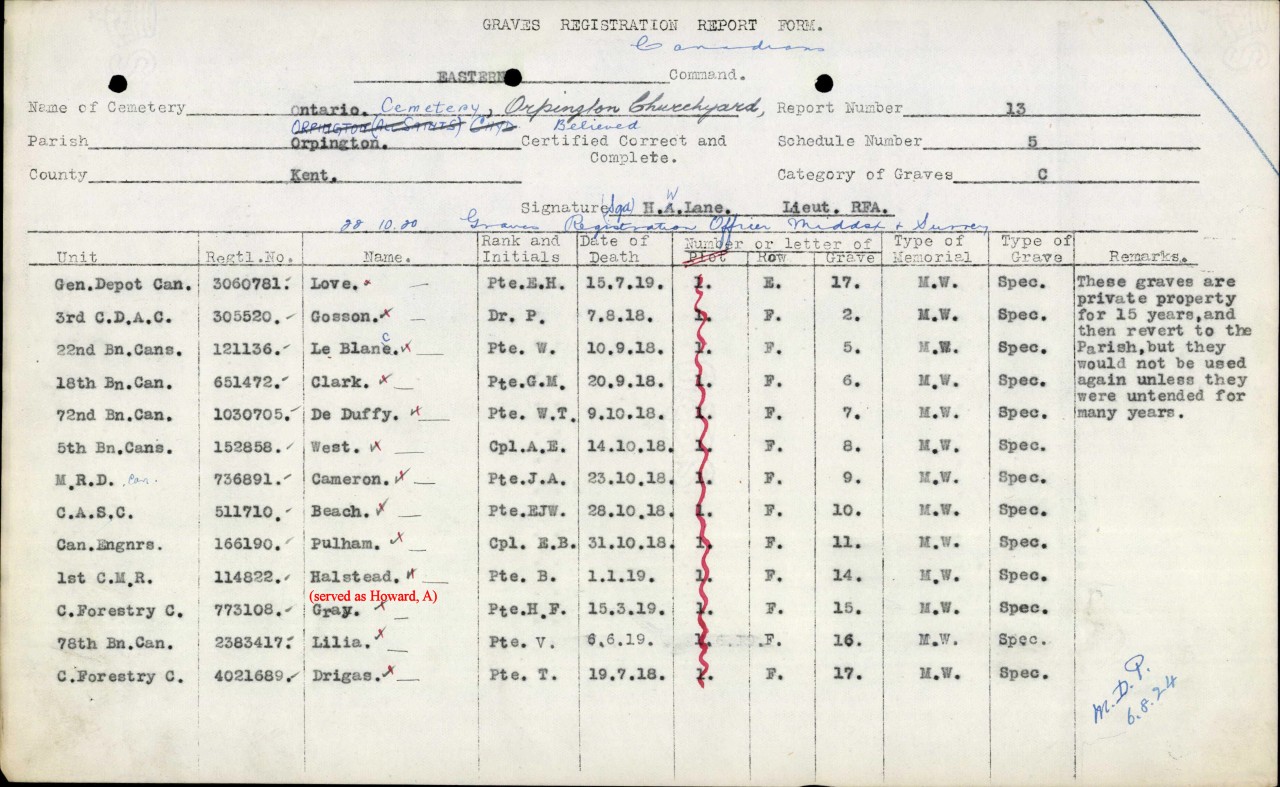 GRAVES REGISTRATION REPORT FORM.
Canadians
EASTERN Command.
Name of Cemetery Ontario. Cemetery, Orpington Churchyard, Report Number 13
ORPINGTON (ALL SAINTS) CHYD Believed
Parish Orpington. Certified Correct and Schedule Number 5
Complete.
County Kent. Category of Graves C
Signature (Sgd) H.A.Lane. W Lieut. RFA.
28.10.20 Graves Registration Officer Middsx & Surrey
Unit Regtl.No. Name. Rank and Initials Date of Death Number or letter of Plot Row Grave Type of Memorial Type of Grave Remarks.
Gen.Depot Can. 3060781. Love. Pte.E.H. 15.7.19. 1. E. 17. M.W. Spec. These graves are
private property
3rd C.D.A.C. 305520. Gosson. Dr. P. 7.8.18. 1. F. 2. M.W. Spec. for 15 years,and
then revert to the
22nd Bn.Cans. 121136. Le Blanc. Pte. W. 10.9.18. 1. F. 5. M.W. Spec. Parish,but they
would not be used
18th Bn.Can. 651472. Clark. Pte.G.M. 20.9.18. 1. F. 6. M.W. Spec. again unless they
were untended for
72nd Bn.Can. 1030705. De Duffy. Pte. W.T. 9.10.18. 1. F. 7. M.W. Spec. many years.
5th Bn.Cans. 152858. West. Cpl.A.E. 14.10.18. 1. F. 8. M.W. Spec.
M.R.D. Can. 736891. Cameron. Pte.J.A. 23.10.18. 1. F. 9. M.W. Spec.
C.A.S.C. 511710. Beach. Pte.EJW. 28.10.18. 1. F. 10. M.W. Spec.
Can.Engnrs. 166190. Pulham. Cpl. E.B. 31.10.18. 1. F. 11. M.W. Spec.
1st C.M.R. 114822. Halstead. Pte. B. 1.1.19. 1. F. 14. M.W. Spec.
(served as Howard, A)
C.Forestry C. 773108. Gray. Pte.H.F. 15.3.19. 1. F. 15. M.W. Spec.
78th Bn.Can. 2383417. Lilia. Pte. V. 6.6.19. 1. F. 16. M.W. Spec.
C.Forestry C. 4021689. Drigas. Pte. T. 19.7.18. 1. F. 17. M.W. Spec.
M.D.P.
6.8.24